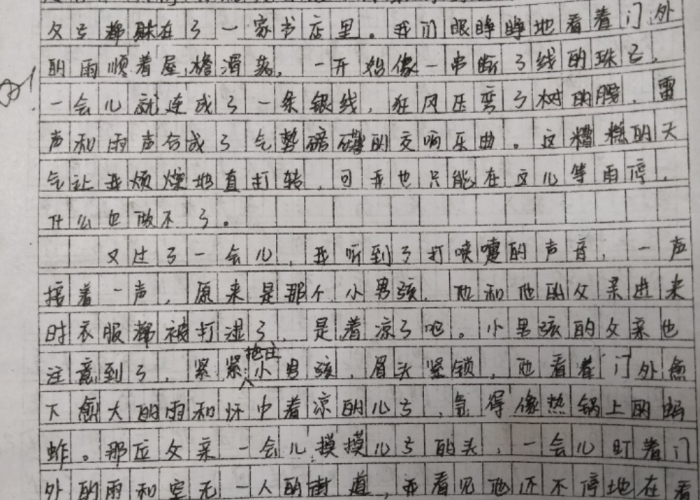 父子都躲在了一家书店里。我们眼睁睁地看着门外
的雨顺着屋檐滑落，一开始像一串断了线的珠子，
一会儿就连成了一条银线，狂风压弯了树的腰，雷
声和雨声合成了气势磅礴的交响乐曲。这糟糕的天
气让我烦燥地直打转，可我也只能在这儿等雨停，
什么也做不了。
又过了一会儿，我听到了打喷嚏的声音，一声
接着一声，原来是那个小男孩，他和他的父亲进来
时衣服都被打湿了，是着凉了吧。小男孩的父亲也
注意到了，紧紧抱住小男孩，眉头紧锁，他看着门外愈
下愈大的雨和怀中着凉的儿子，急得像热锅上的蚂
蚱。那位父亲一会儿摸摸儿子的头，一会儿盯着门
外的雨和空无一人的街道，我看见他还不停地在